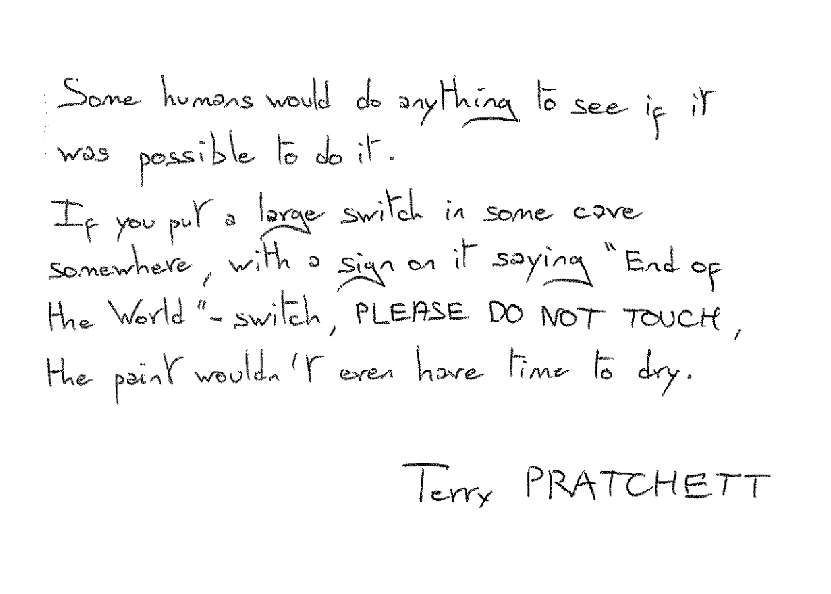 Some humans would do anything to see if it
was possible to do it.
If you put a large switch in some cave
somewhere, with a sign on it saying "End of
the World"-switch, PLEASE DO NOT TOUCH,
the paint wouldn't even have time to dry.
Terry PRATCHETT